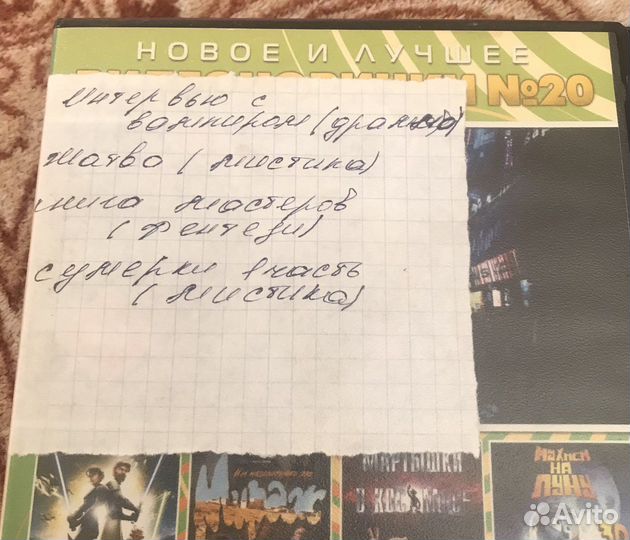 НОВОЕ И ЛУЧШЕЕ
№20
Интервью с
вампиром (драма)
Жатва (мистика)
книга мастеров
(фентези)
сумерки 1 часть
(мистика)
Мираж
МАРТЫШКИ
В КОСМОСЕ
МУХНЕМ
НА
ЛУНУ
Avito